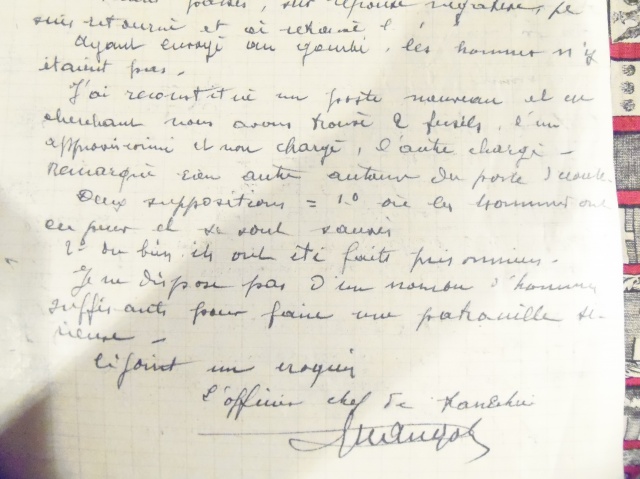 passés, sur réponse négative, je
suis retourné et ai
Ayant envoyé au gourbi, les hommes n'y
étaient pas.
J'ai reconstitué un poste nouveau et en
cherchant nous avons trouvé 2 fusils, l'un
approvisionné et non chargé, l'autre chargé -
Remarqué rien autre autour du poste d'écoute.
Deux suppositions = 1° où les hommes ont
eu peur et se sont sauvés
2° ou bien ils ont été faits prisonniers.
Je ne dispose pas d'un nombre d'hommes
suffisants pour faire une patrouille sé-
rieuse -
Cijoint un croquis
L'officier chef de tranchée